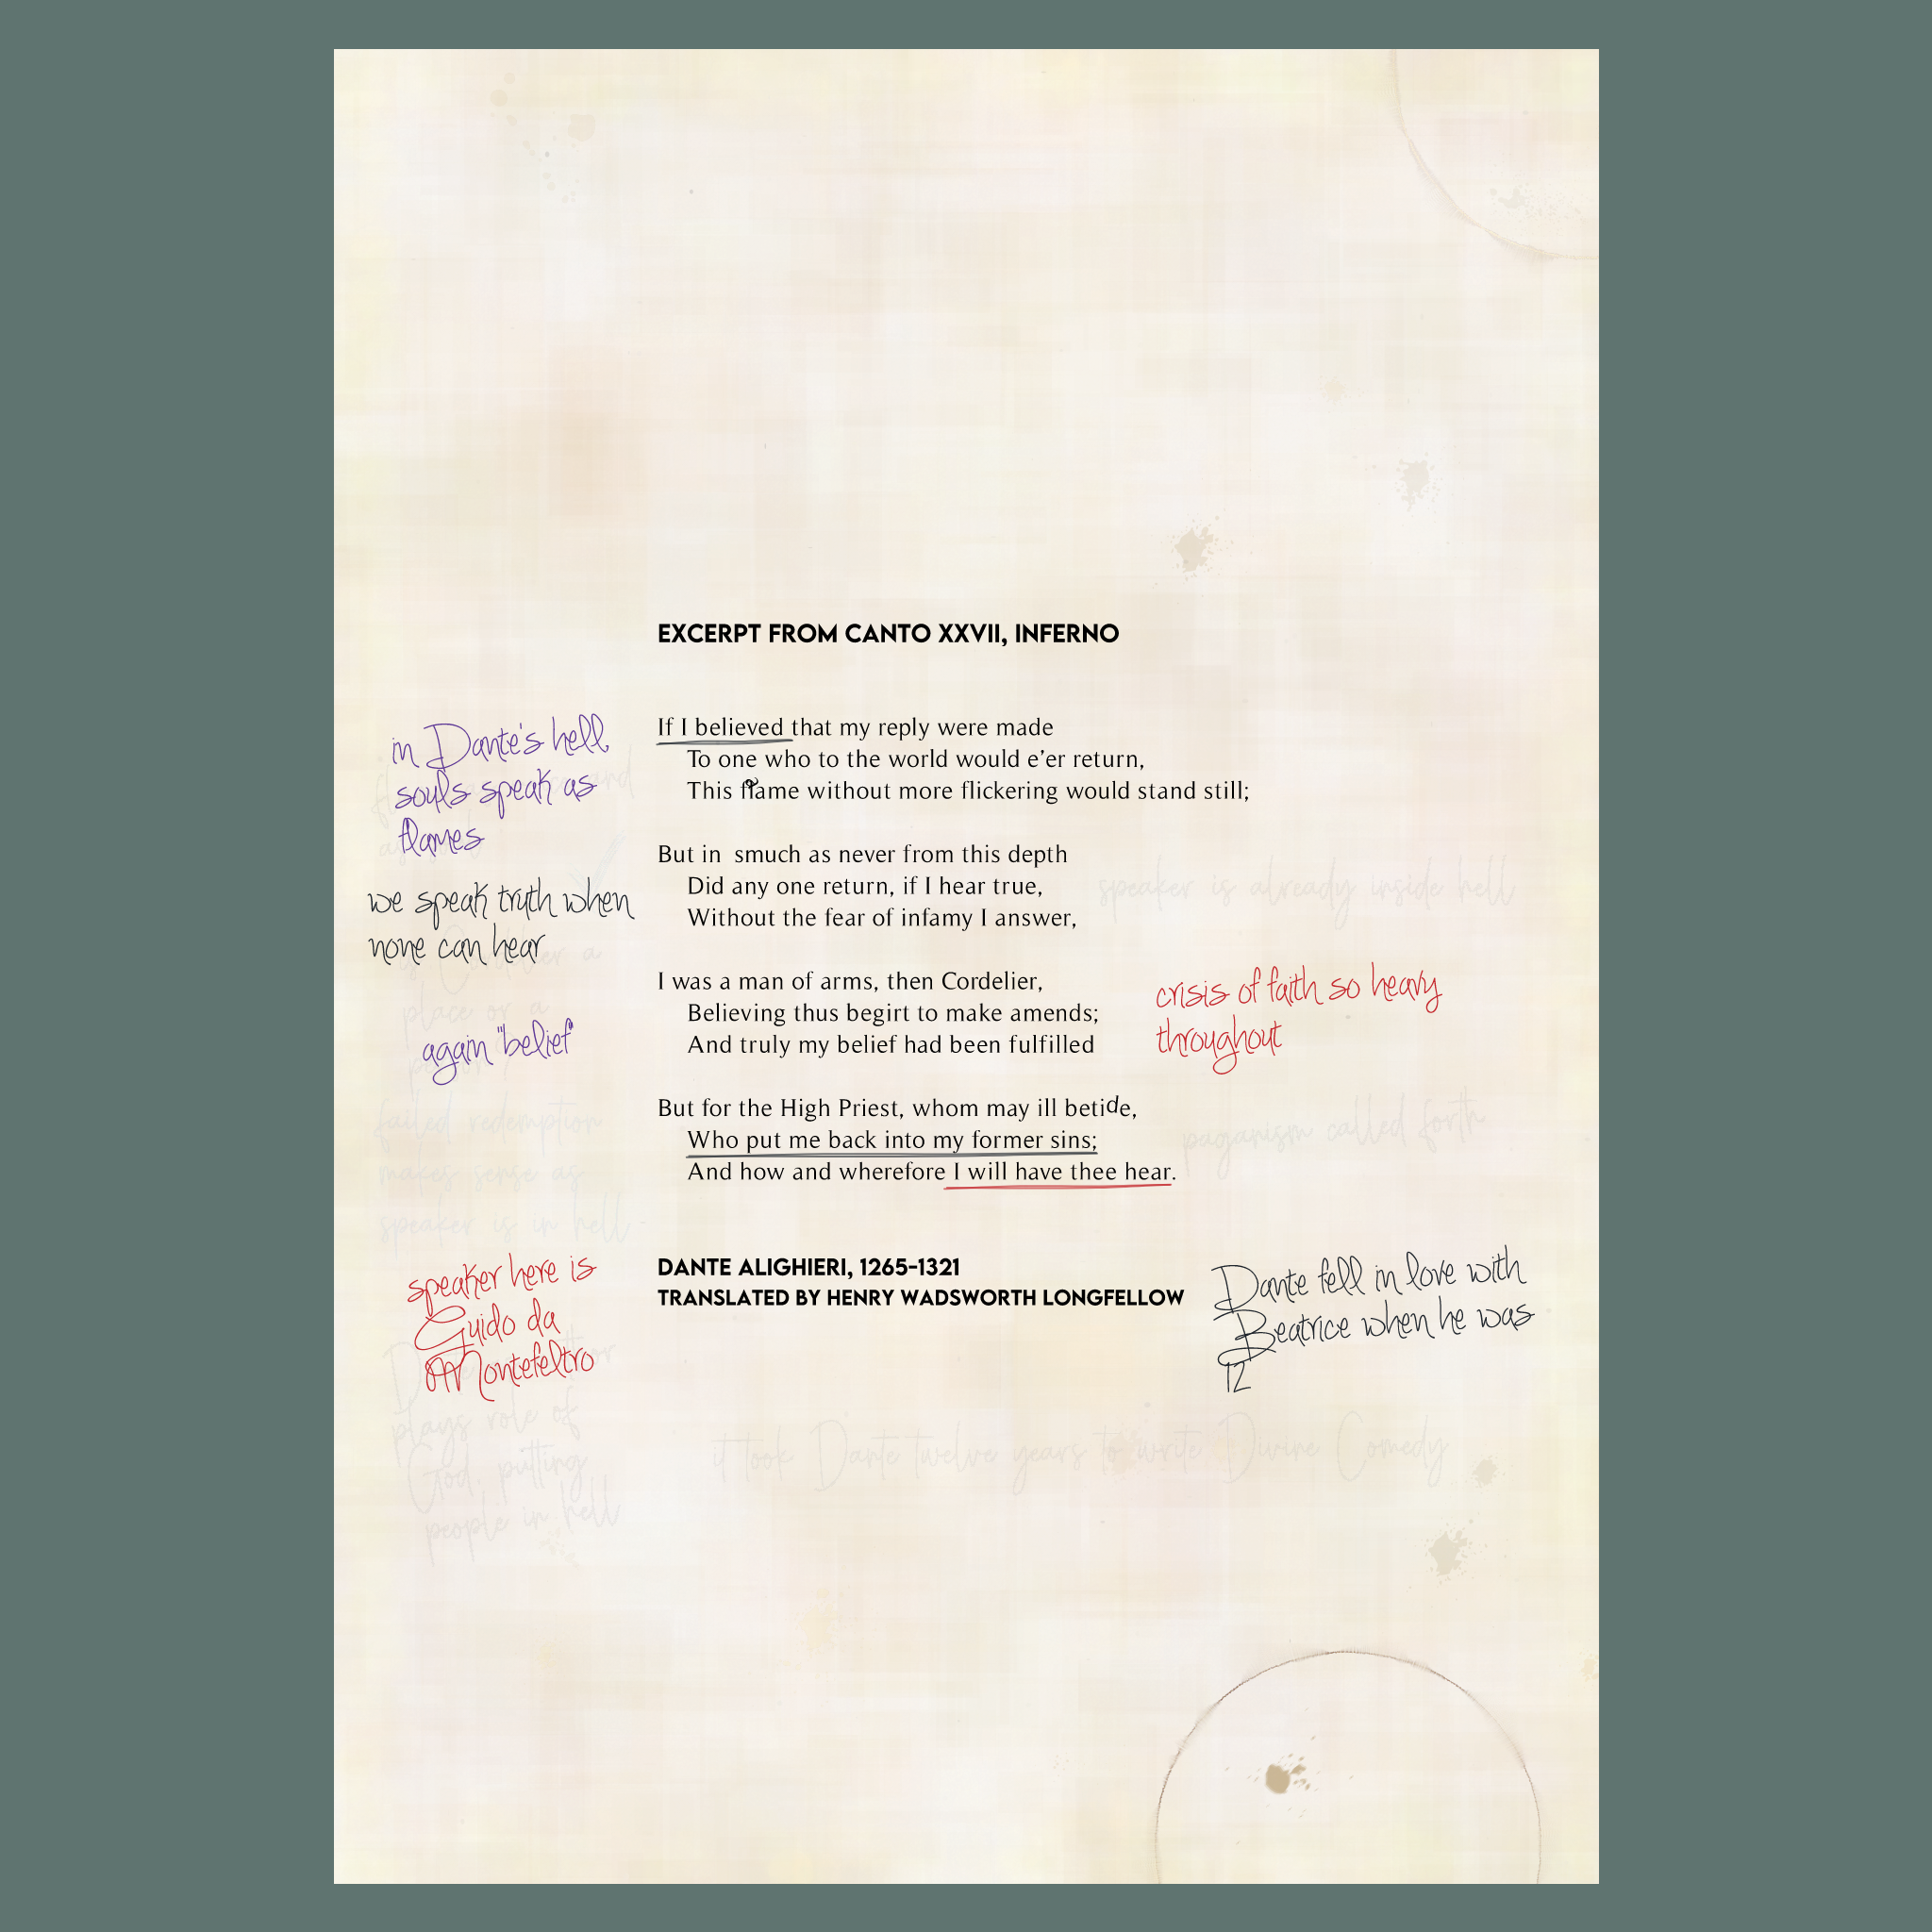 EXCERPT FROM CANTO XXVII, INFERNO
If I believed that my reply were made
To one who to the world would e’er return,
This flame without more flickering would stand still;
But in smuch as never from this depth
Did any one return, if I hear true,
Without the fear of infamy I answer,
I was a man of arms, then Cordelier,
Believing thus begirt to make amends;
And truly my belief had been fulfilled
But for the High Priest, whom may ill betide,
Who put me back into my former sins;
And how and wherefore I will have thee hear.
DANTE ALIGHIERI, 1265-1321
TRANSLATED BY HENRY WADSWORTH LONGFELLOW
in Dante's hell,
souls speak as
flames
we speak truth when
none can hear
again "belief"
speaker here is
Guido da
Montefeltro
crisis of faith so heavy
throughout
Dante fell in love with
Beatrice when he was
12
speaker is already inside hell
paganism called forth
it took Dante twelve years to write Divine Comedy
place or a
failed redemption
makes sense as
speaker is in hell
plays role of
God, putting
people in hell